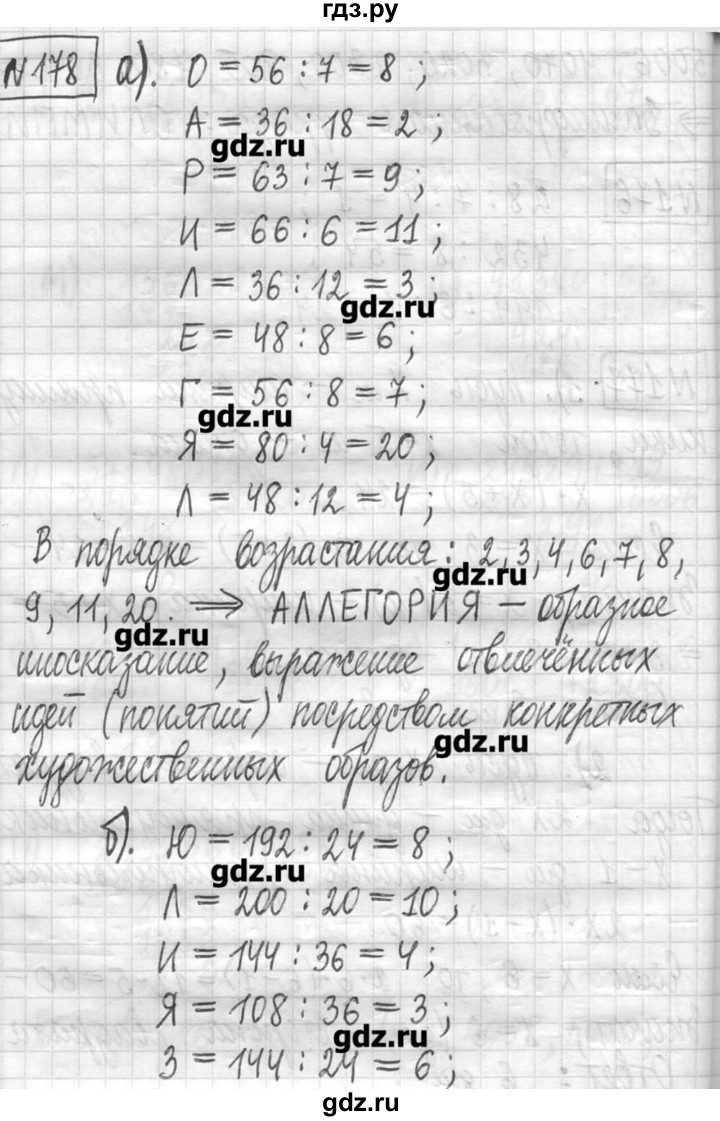 гдз.ру
N178 а). О = 56 : 7 = 8 ;
А = 36 : 18 = 2 ;
gdz.ru
Р = 63 : 7 = 9 ;
И = 66 : 6 = 11 ;
Л = 36 : 12 = 3 ;
gdz.ru
Е = 48 : 8 = 6 ;
Г = 56 : 8 = 7 ;
gdz.ru
Я = 80 : 4 = 20 ;
Л = 48 : 12 = 4 ;
В порядке возрастания : 2, 3, 4, 6, 7, 8,
gdz.ru
9, 11, 20. ⟹ АЛЛЕГОРИЯ – образное
gdz.ru
иносказание, выражение отвлечённых
идей (понятий) посредством конкретных
gdz.ru
художественных образов.
б). Ю = 192 : 24 = 8 ;
gdz.ru
Л = 200 : 20 = 10 ;
И = 144 : 36 = 4 ;
Я = 108 : 36 = 3 ;
gdz.ru
З = 144 : 24 = 6 ;
gdz.ru